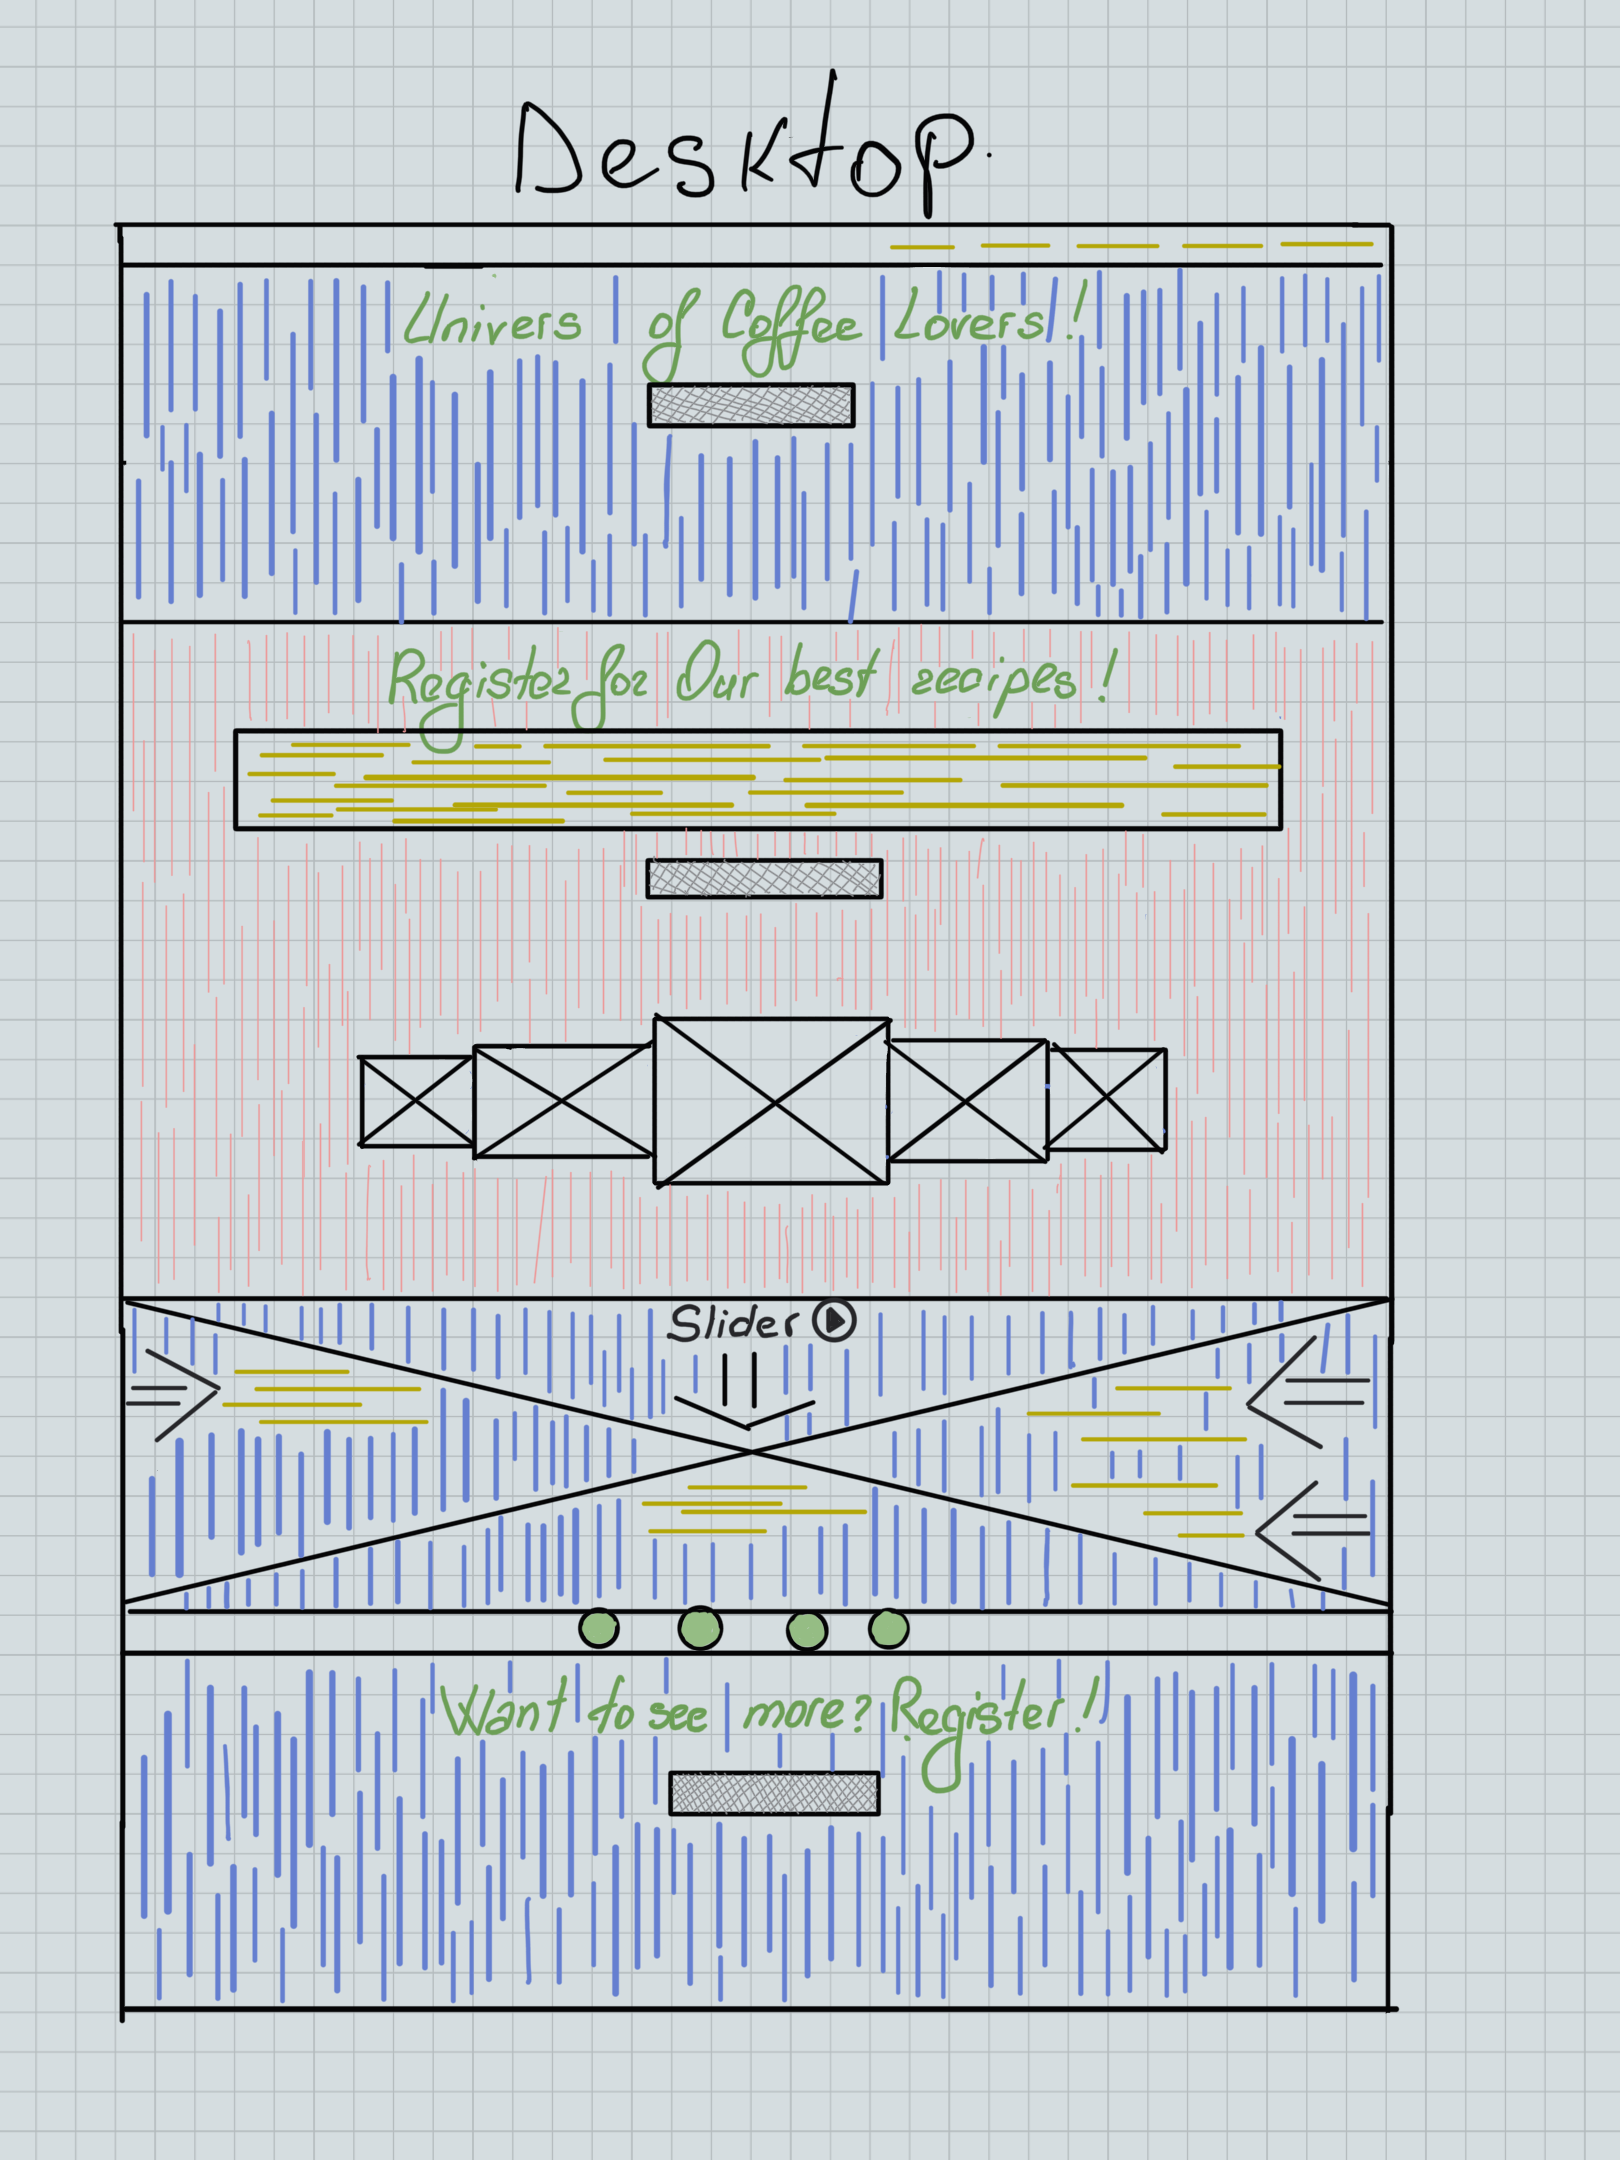 Desktop.
Univers of Coffee Lovers!
Register for Our best recipes!
Slider
Want to see more? Register!